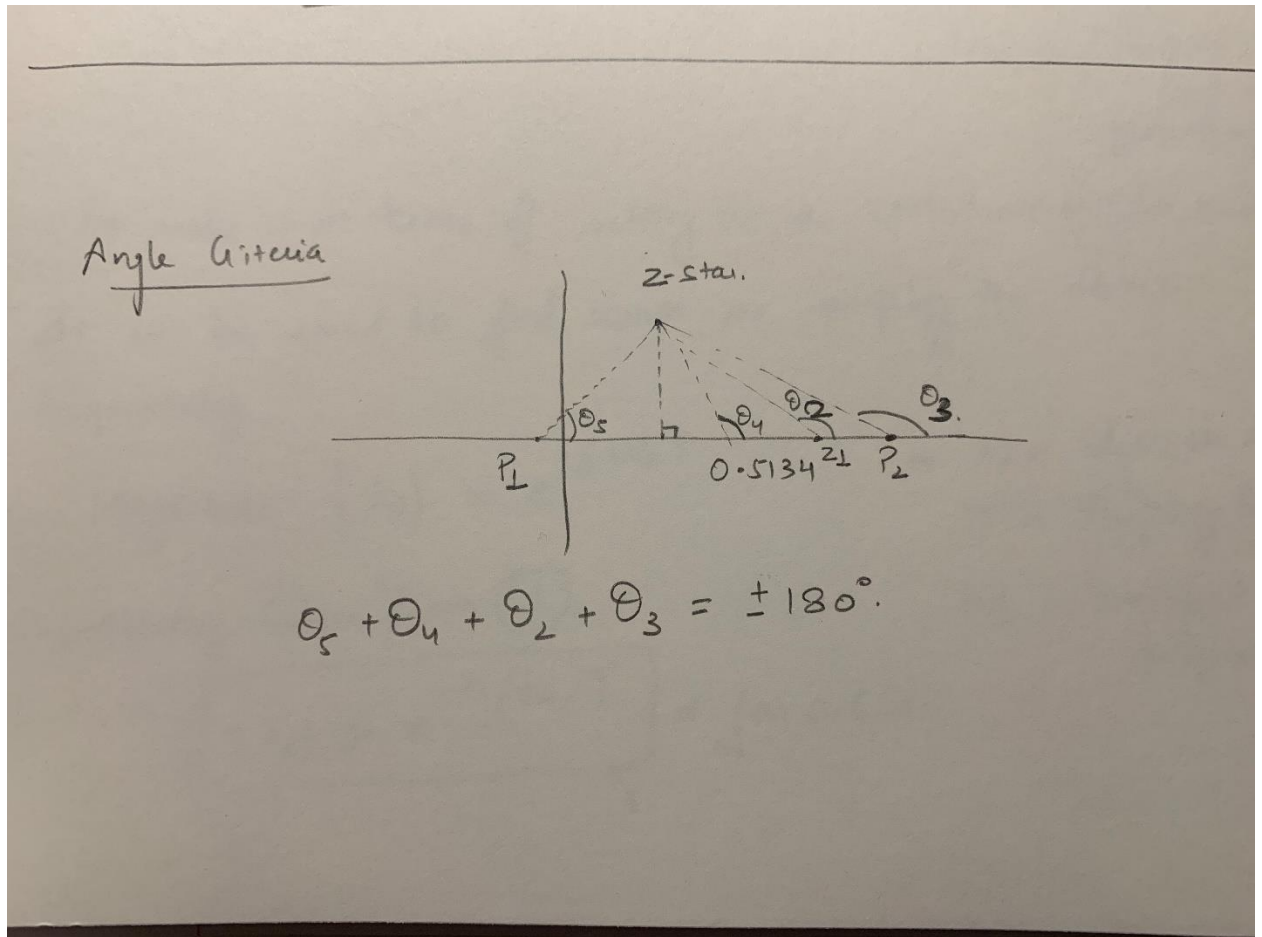 Angle Criteria
z-star.
θ5
θ4
θ2
θ3.
P1
0.5134
z1
P2
θ5 + θ4 + θ2 + θ3 = ± 180°.